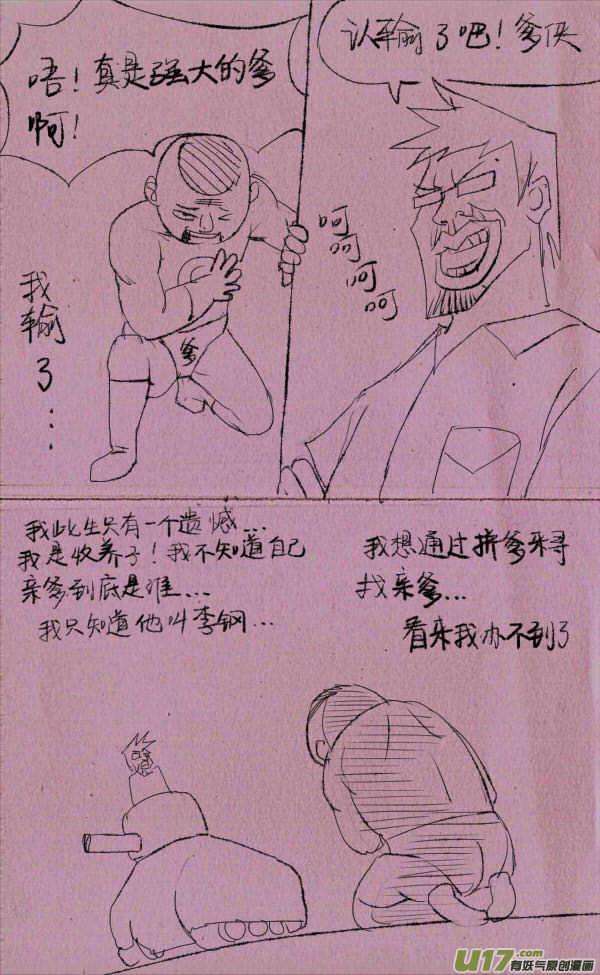 唔！真是强大的爹
啊！
我
输
了
...
爹
认输了吧！爹侠
呵
呵
呵
呵
我此生只有一个遗憾...
我是收养子！我不知道自己
亲爹到底是谁...
我只知道他叫李钢...
我想通过拼爹来寻
找亲爹...
看来我办不到了
U17.com
有妖气原创漫画